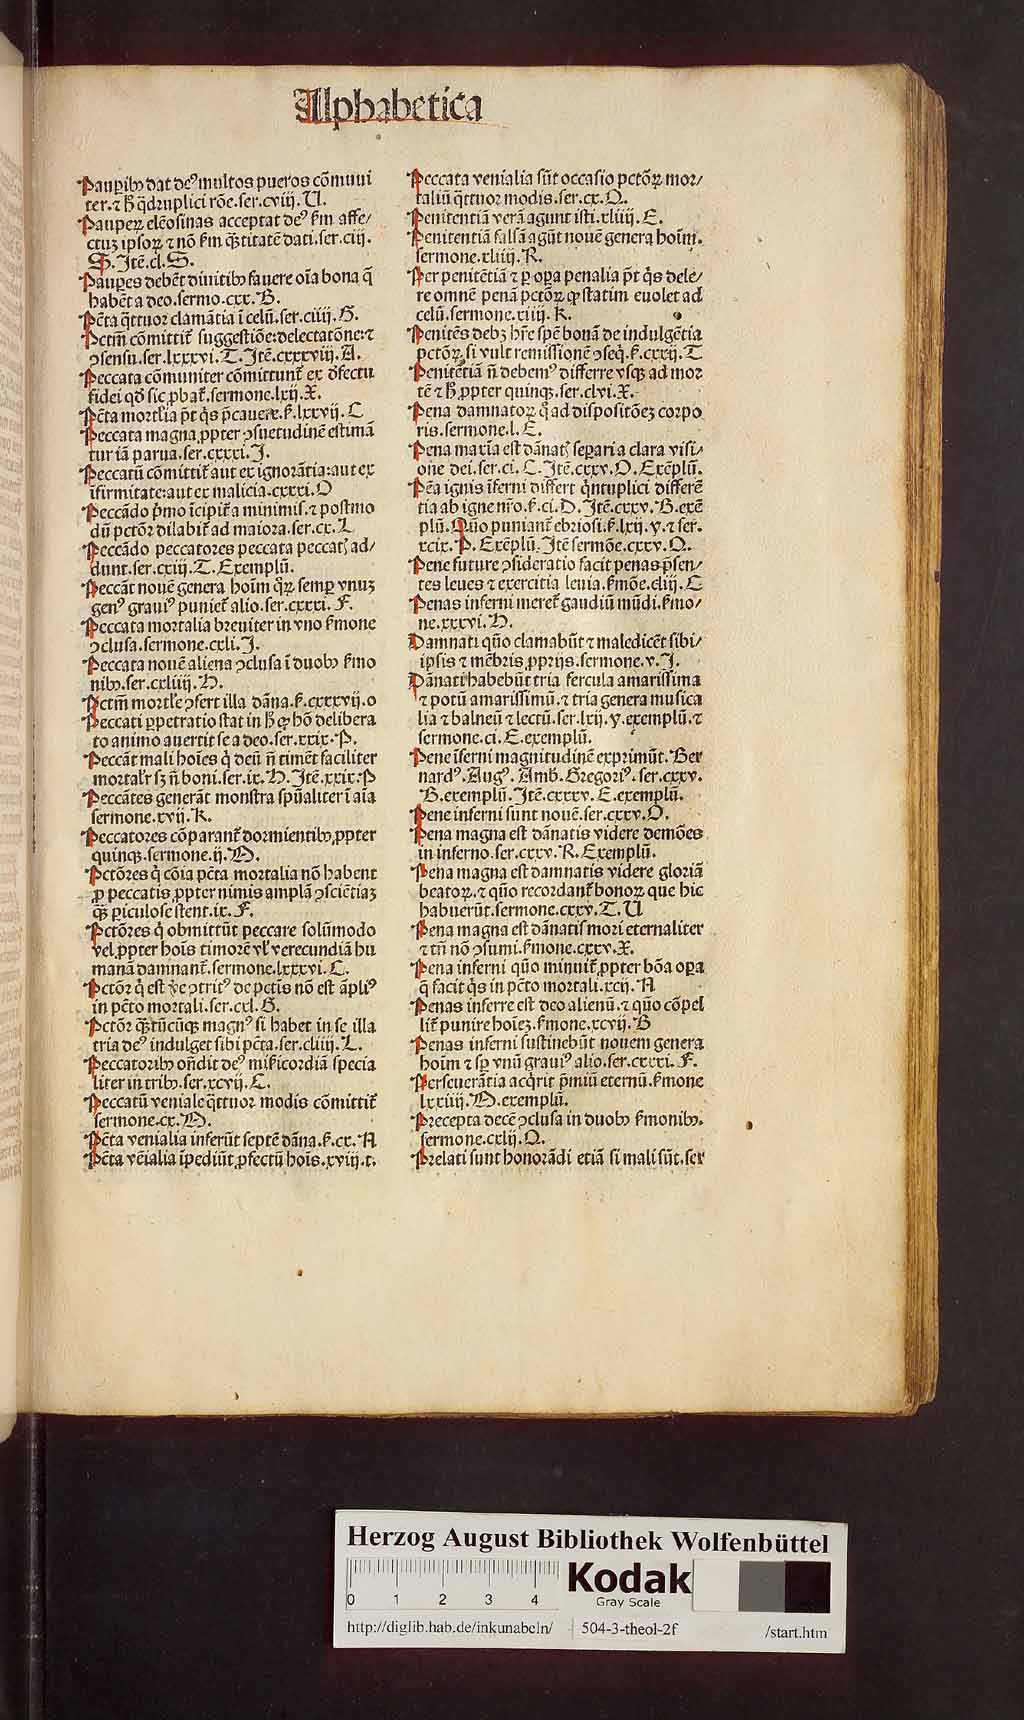 Alphabetica
Pauꝑibꝰ dat deꝰ multos pueros cōmuni
ter. ⁊ h̄ q̄druplici rōe. ser. cviij. U.
Pauperꝝ eleōsinas acceptat deꝰ ẜm affe/
ctuꝫ ipsoꝝ ⁊ nō ẜm q̄ꝫtitatē dati. ser. ciij.
S. Itē. cl. S.
Pauꝑes debēt diuitibꝰ fauere oīa bona q̄
habēt a deo. sermo. cxx. B.
Pctā q̄ttuor clamātia ī celū. ser. ciiij. G.
Pctm̄ cōmittit̄ suggestiōe: delectatōne: ⁊
ꝯsensu. ser. lxxxvi. T. Itē. cxxxviij. A.
Peccata cōmuniter cōmittunt̄ ex defectu
fidei qd̄ sic ꝓbat̄. sermone. lxij. X.
Pctā mortl̓ia pt̄ q̓s p̄cauere. ẜ. lxxvij. C
Peccata magna ꝓpter ꝯsuetudinē estimā
tur iā parua. ser. cxxxi. J.
Peccatū cōmittit̄ aut ex ignorātia: aut ex
īfirmitate: aut ex malicia. cxxxi. O
Peccādo pͥmo īcipit̄ a minimis. ⁊ postmo
dū pctōr dilabit̄ ad maiora. ser. cx. L
Peccādo peccatores peccata peccatꝭ ad/
dunt. ser. cxiij. T. Exemplū.
Peccāt nouē genera hoīm q̓ꝝ semꝑ vnuꝫ
genꝰ grauiꝰ puniet̄ alio. ser. cxxxi. F.
Peccata mortalia breuiter in vno ẜmone
ꝯclusa. sermone. cxli. J.
Peccata nouē aliena ꝯclusa ī duobꝰ ẜmo
nibꝰ. ser. cxliiij. H.
Pctm̄ mortl̓e ꝯfert illa dāna. ẜ. cxxxvij. o
Peccati ꝑpetratio stat in h̄ ꝙ hō delibera
to animo auertit se a deo. ser. xxix. P.
Peccāt mali hoīes q̓ deū n̄ timēt faciliter
mortal̓r sꝫ n̄ boni. ser. ix. H. Itē. xxix. P
Peccātes generāt monstra spūaliter ī aīa
sermone. xvij. K.
Peccatores cōparant̄ dormientibꝰ ꝓpter
quinqꝫ. sermone. ij. M.
Pctōres q̓ cōia pctā mortalia nō habent
ꝓ peccatis ꝓpter nimis amplā ꝯsciētiaꝫ
q̄ꝫ ꝑiculose stent. ix. F.
Pctōres q̓ obmittūt peccare solūmodo
vel ꝓpter hoīs timorē vl̓ verecundiā hu
manā damnant̄. sermone. lxxxvi. C.
Pctōr q̓ est ve̓ ꝯtritꝰ de pctis nō est āpliꝰ
in pctō mortali. ser. cxl. G.
Pctōr q̄ꝫtūcūqꝫ magnꝰ si habet in se illa
tria deꝰ indulget sibi pctā. ser. cliiij. L.
Peccatoribꝰ ondit deꝰ mīẜicordiā specia
liter in tribꝰ. ser. xcvij. C.
Peccatū veniale q̄ttuor modis cōmittit̄
sermone. cx. M.
Pctā venialia inferūt septē dāna. ẜ. cx. N
Pctā vēialia īpediūt ꝓfectū hoīs. xviij. t.
Peccata venialia sūt occasio pctōꝝ mor/
taliū q̄ttuor modis. ser. cx. O.
Penitentiā verā agunt isti. xliiij. E.
Penitentiā falsā agūt nouē genera hoīm.
sermone. xliiij. R.
Per penitētiā ⁊ ꝑ oꝑa penalia pt̄ q̓s dele/
re omnē penā pctōꝝ ꝙ statim euolet ad
celū. sermone. xiiij. K.
Penitēs debꝫ hr̄e spē bonā de indulgētia
pctōꝝ. si vult remissionē ꝯseq̓. ẜ. cxxij. T
Penitētiā n̄ debemꝰ differre vsqꝫ ad mor
tē ⁊ h̄ ꝓpter quinqꝫ. ser. clvi. X.
Pena damnatoꝝ q̊ ad dispositōeꝫ corpo
ris. sermone. l. E.
Pena maxīa est dānatꝭ seꝑari a clara visi/
one dei. ser. ci. C. Itē. cxxv. O. Exēplū.
Pēa ignis īferni differt q̓ntuplici differē
tia ab igne nr̄o. ẜ. ci. D. Itē. cxxv. B. exē
plū. Qūo puniant̄ ebriosi. ẜ. lxij. y. ⁊ ser.
xcix. P. Exēplū. Itē sermōe. cxxv. Q.
Pene future ꝯsideratio facit penas p̄sen/
tes leues ⁊ exercitia leuia. ẜmōe. cliij. C
Penas inferni meret̄ gaudiū mūdi. ẜmo/
ne. xxxvi. H.
Damnati quō clamabūt ⁊ maledicēt sibi/
ipsis ⁊ mēbris ꝓprijs. sermone. v. J.
Dānati habebūt tria fercula amarissima
⁊ potū amarissimū. ⁊ tria genera musica
lia ⁊ balneū ⁊ lectū. ser. lxij. y. exemplū. ⁊
sermone. ci. E. exemplū.
Pene īferni magnitudinē exprimūt. Ber
nardꝰ. Augꝰ. Amb̄. Gregoriꝰ. ser. cxxv.
B. exemplū. Itē. cxxxv. E. exemplū.
Pene inferni sunt nouē. ser. cxxv. O.
Pena magna est dānatis videre demōes
in inferno. ser. cxxv. R. Exemplū.
Pena magna est damnatis videre gloriā
beatoꝝ. ⁊ qūo recordant̄ bonoꝝ que hic
habuerūt. sermone. cxxv. T. U
Pena magna est dānatis mori eternaliter
⁊ tn̄ nō ꝯsumi. ẜmone. cxxv. X.
Pena inferni qūo minuit̄ ꝓpter bōa oꝑa
q̄ facit q̓s in pctō mortali. xcij. N
Penas inferre est deo alienū. ⁊ qūo cōpel
lit̄ punire hoīeꝫ. ẜmone. xcvij. B
Penas inferni sustinebūt nouem genera
hoīm ⁊ sꝑ vnū grauiꝰ alio. ser. cxxxi. F.
Perseuerātia acq̓rit p̄miū eternū. ẜmone
lxxiiij. M. exemplū.
Precepta decē ꝯclusa in duobꝰ ẜmonibꝰ.
sermone. cxlij. Q.
Prelati sunt honorādi etiā si mali sūt. ser
Herzog August Bibliothek Wolfenbüttel
0 1 2 3 4
Kodak
Gray Scale
http://diglib.hab.de/inkunabeln/ 504-3-theol-2f /start.htm